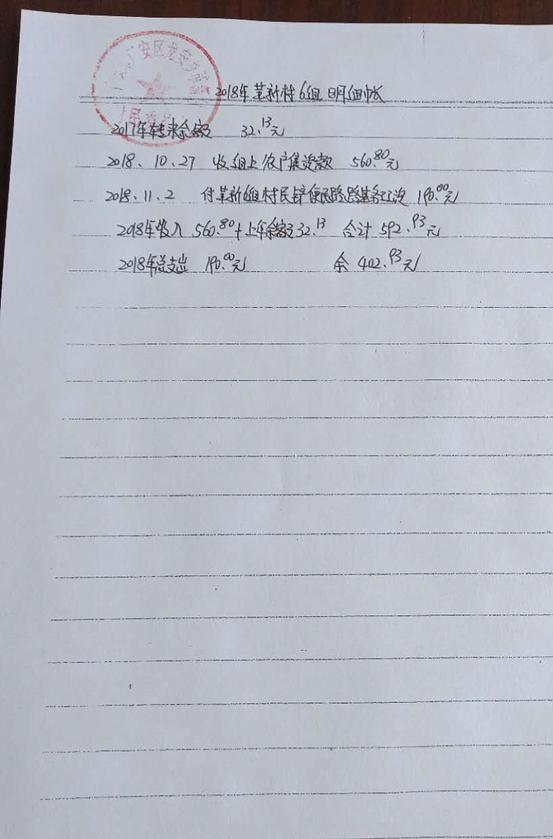 广安区龙安
2018年革新村6组明细帐
2017年转来余额 32.13元
2018.10.27 收组上农户集资款 560.80元
2018.11.2 付革新6组村民铲便民路路基务工资 190.00元
2018年收入 560.80+上年余额32.13 合计592.93元
2018年总支出 190.00元 余 402.93元